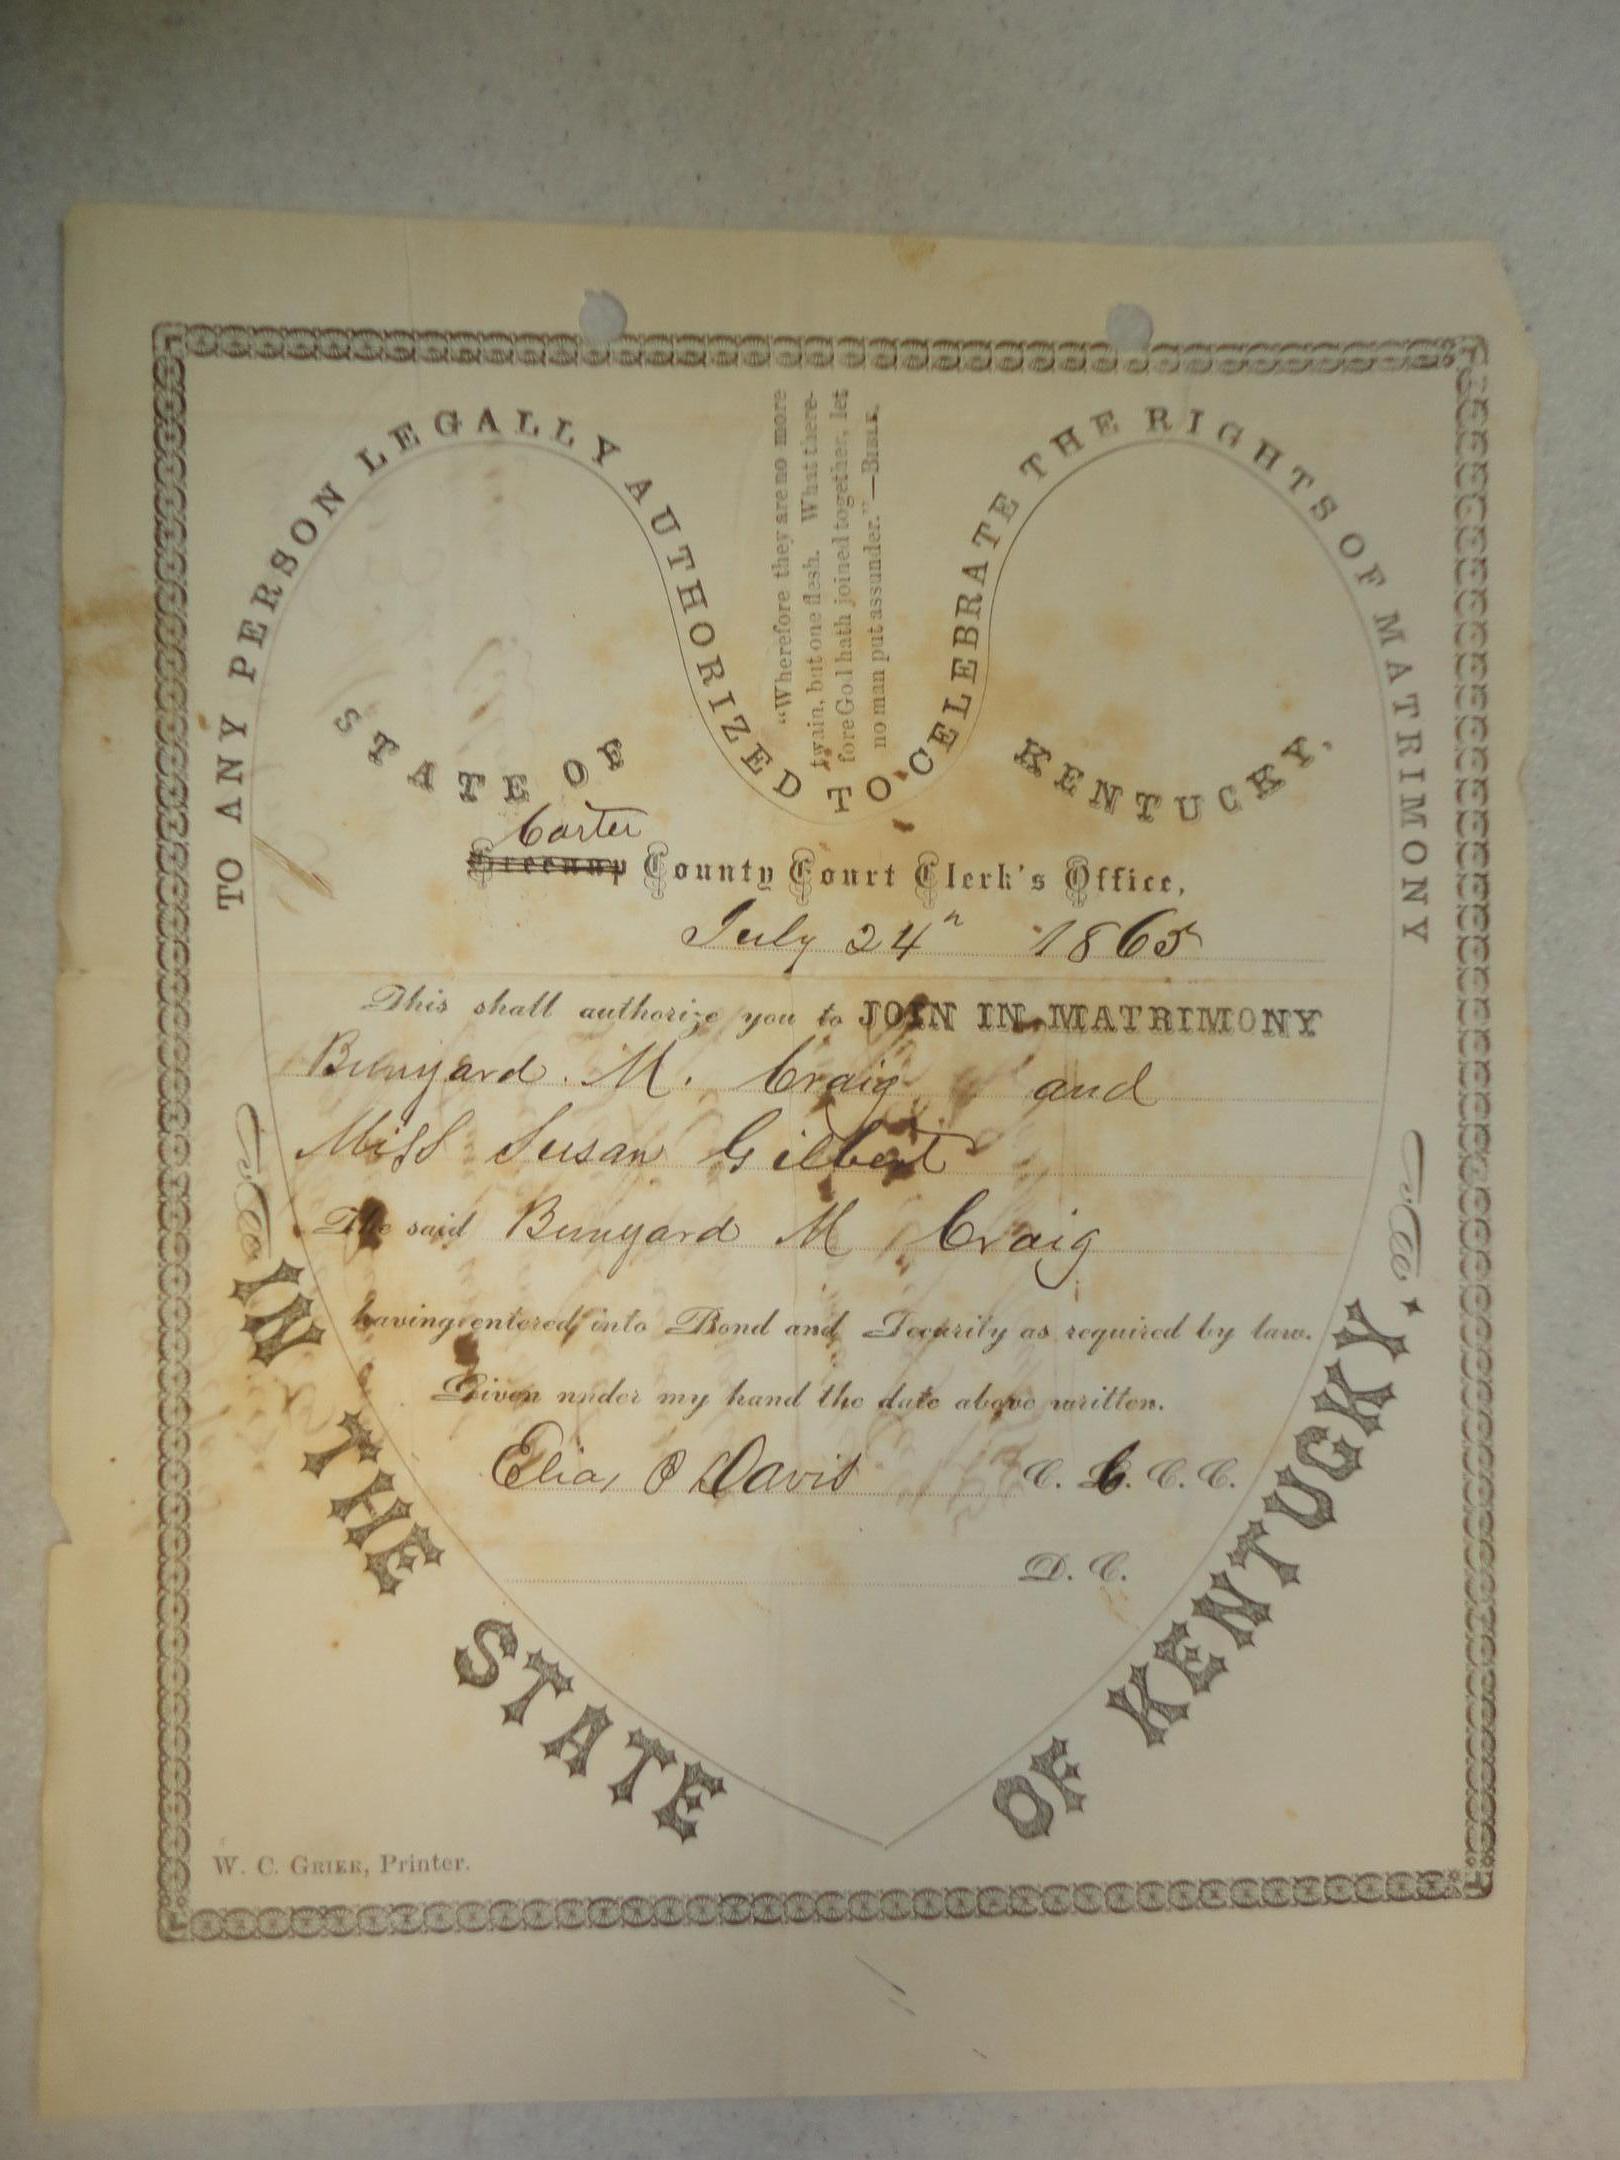 TO ANY PERSON LEGALLY AUTHORIZED TO CELEBRATE THE RIGHTS OF MATRIMONY
"Wherefore they are no more
twain, but one flesh. What there-
fore God hath joined together, let
no man put assunder."—BIBLE.
STATE OF KENTUCKY,
Carter
Greenup County Court Clerk's Office,
July 24th 1865
This shall authorize you to JOIN IN MATRIMONY
Bunyard. M. Craig and
Miss Susan Gilbert
The said Bunyard M Craig
having entered into Bond and Security as required by law.
Given under my hand the date above written.
Elias P Davis C. C. C. C.
D. C.
IN THE STATE OF KENTUCKY.
W. C. GRIER, Printer.